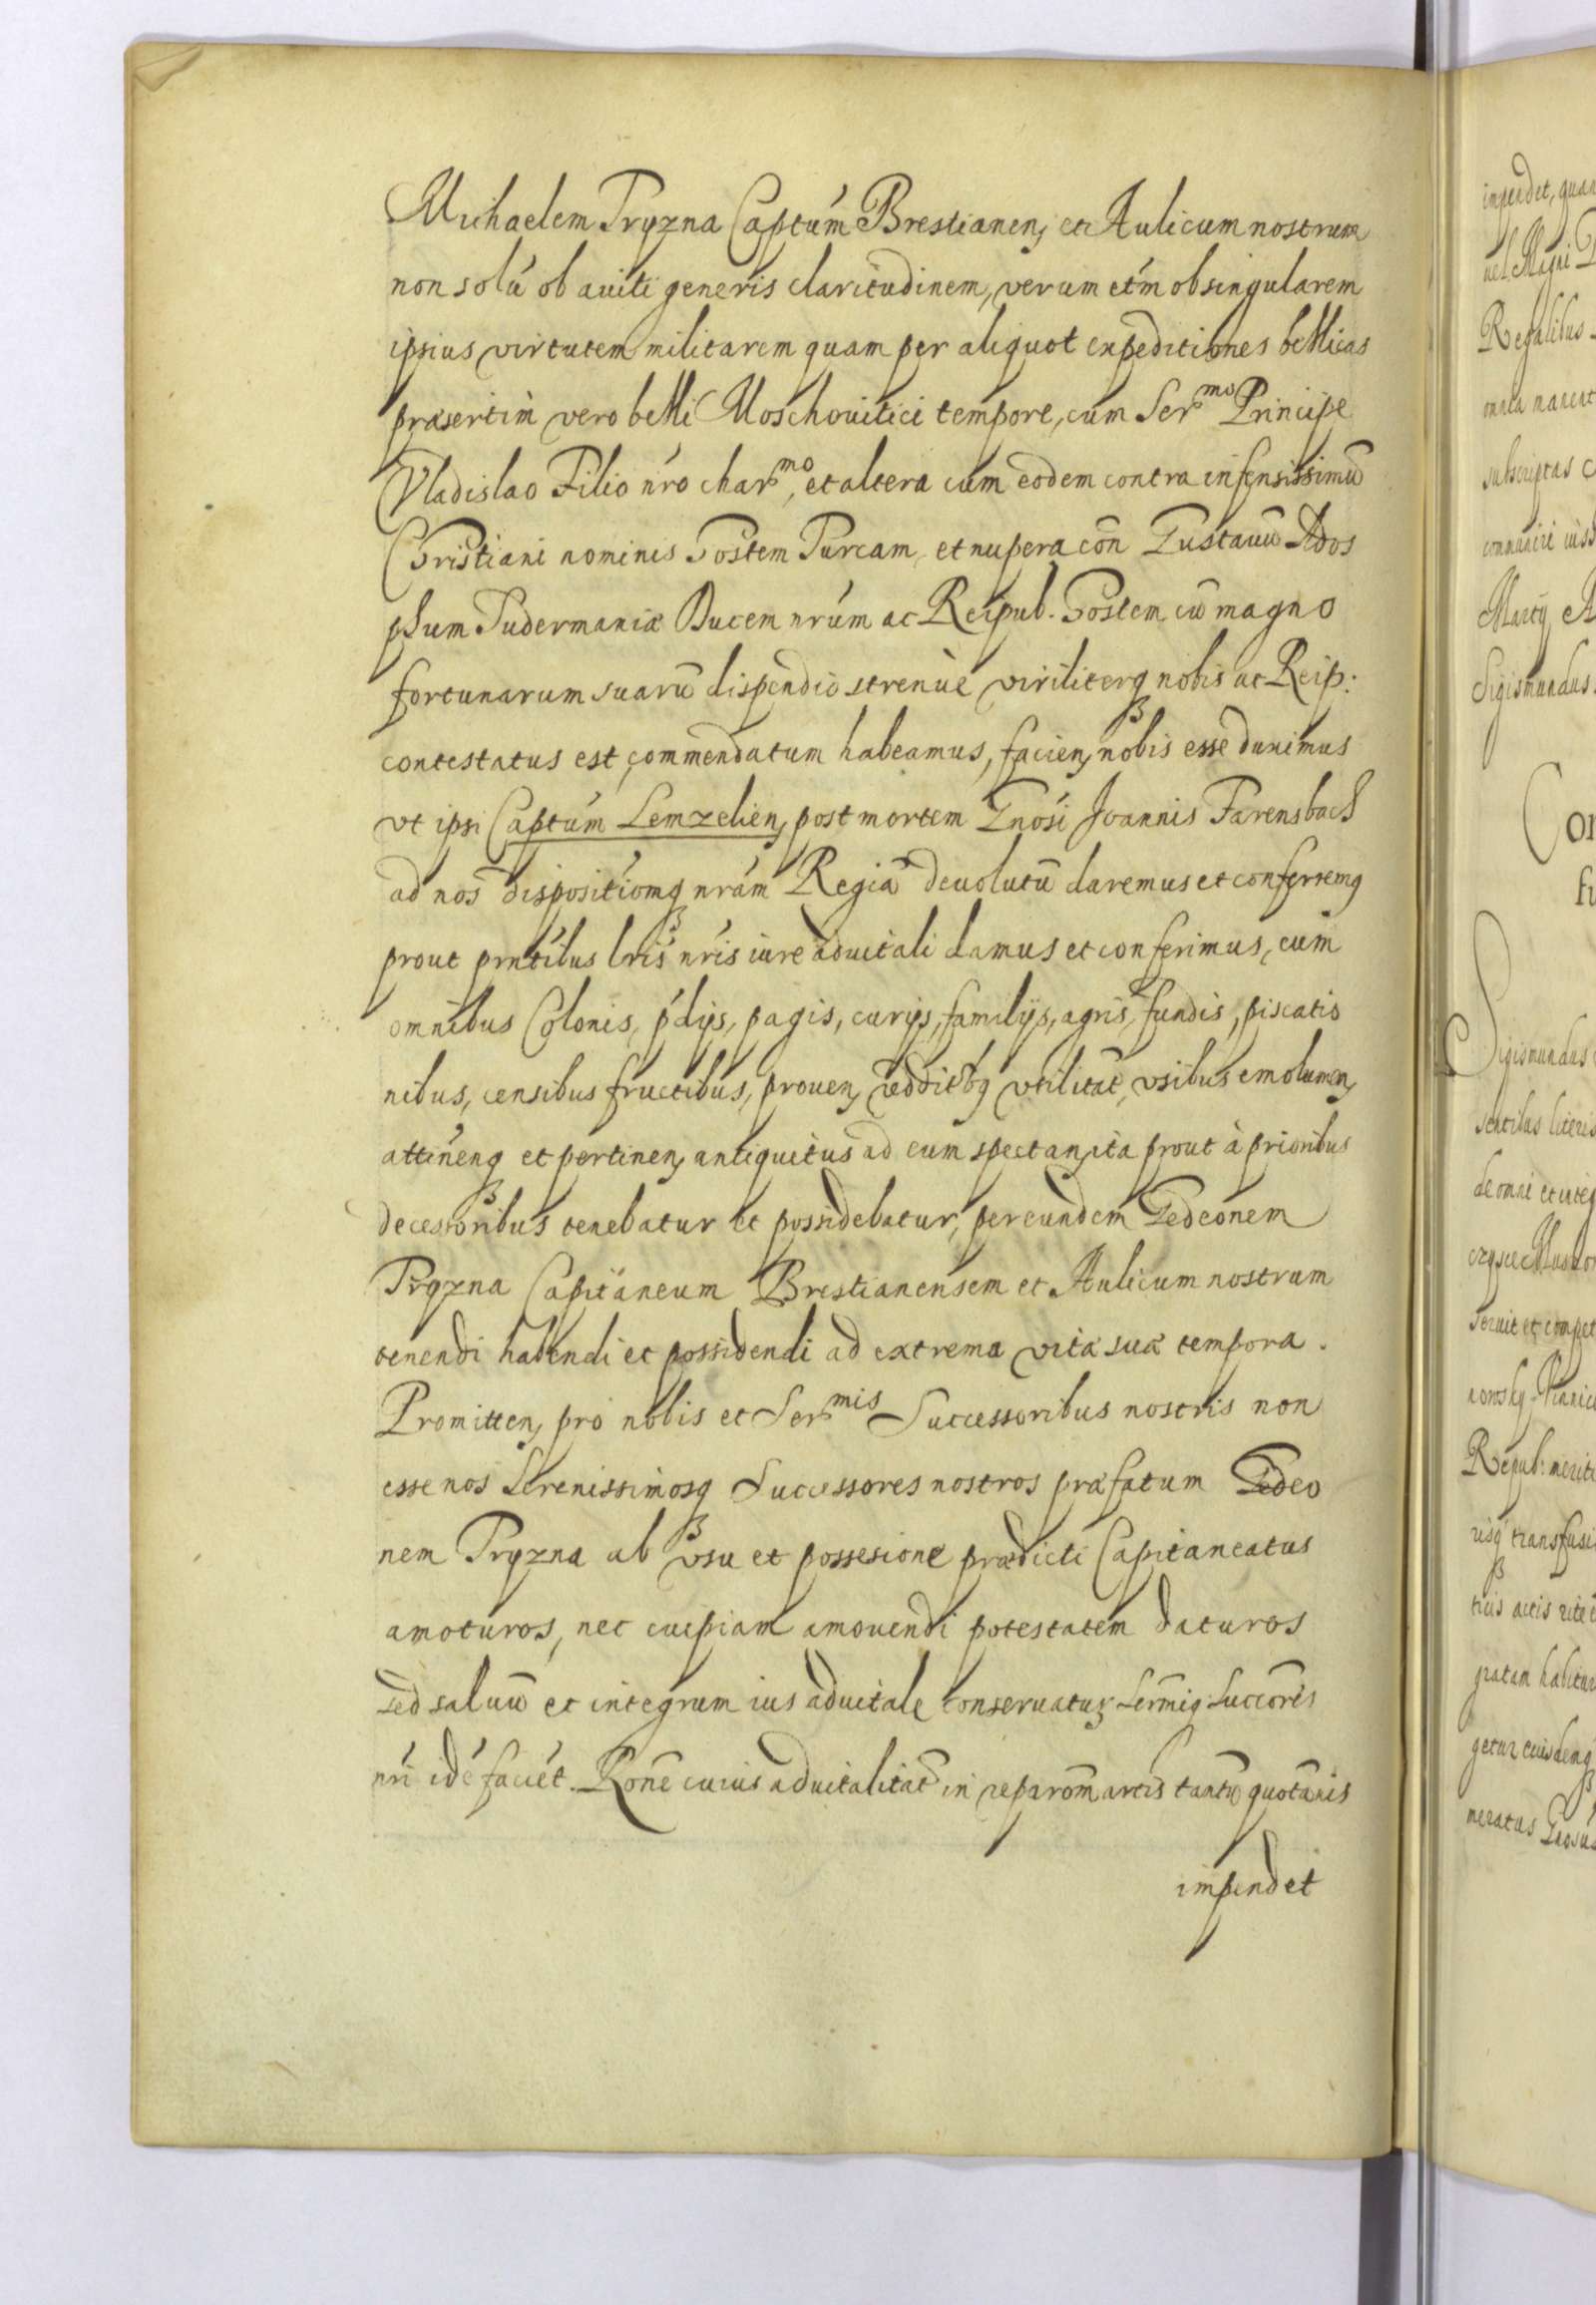 Michaelem Tryzna Captúm Brestianen, et Aulicum nostrum
non solú ob auiti generis claritudinem, verum etḿ ob singularem
ipsius virtutem militarem quam per aliquot expeditiones bellicas
præsertim vero belli Moschouitici tempore, cum Ser^mo Principe
Vladislao Filio nŕo char^mo, et altera cum eodem contra infensissimū
Christiani nominis Hostem Turcam, et nupera cōn Gustauū Ados
phum Sudermaniæ Ducem nrúm ac Reipub. Hostem cū magno
fortunarum suarū dispendio strenuè viriliterq nobis ac Reip:
contestatus est, commendatum habeamus, facien, nobis esse duximus
vt ipsi Captúm Lemzelien, post mortem Gnósi Joannis Farensbach
ad nos dispositiómq nrám Regiā deuolutū daremus et conferremq
prout prntíbus lrís nrís iure aduitali damus et conferimus, cum
omnibus Colonis, pʹdijs, pagis, curijs, familijs, agris, fundis, piscatio
nibus, censibus fructibus, prouen, redditbq vtilitāt, vsibus emolumen,
attinenq et pertinen, antiquitus ad eum spectan, ita prout à prioribus
decessoribus tenebatur et possidebatur, per eundem Gedeonem
Tryzna Capitaneum Brestianensem et Aulicum nostrum
tenendi habendi et possidendi ad extrema vitæ suæ tempora.
Promitten, pro nobis et Ser^mis Successoribus nostris non
esse nos Serenissimosq Successores nostros præfatum Gedeo
nem Tryzna ab vsu et possesione prædicti Capitaneatus
amoturos, nec cuipiam amouendi potestatem daturos
sed saluū et integrum ius aduitale conseruatur, Sermiq Succōres
nrí idé faciét. Rōne cuius aduitalitāt in reparōm arcis tantū quotānis
impendet
impendet, quam
vel Magni D
Regalibus
subscriptas
communiri iuss
Martij A
Sigismundus
Con
Sigismundus
sentibus literis
de omni et
seruit et compet
Repub: meriti
risq transfusi
gratam habitur
getur
meratus Gnosus